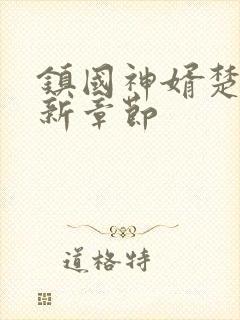 鎮國神婿楚
新章節
道格特